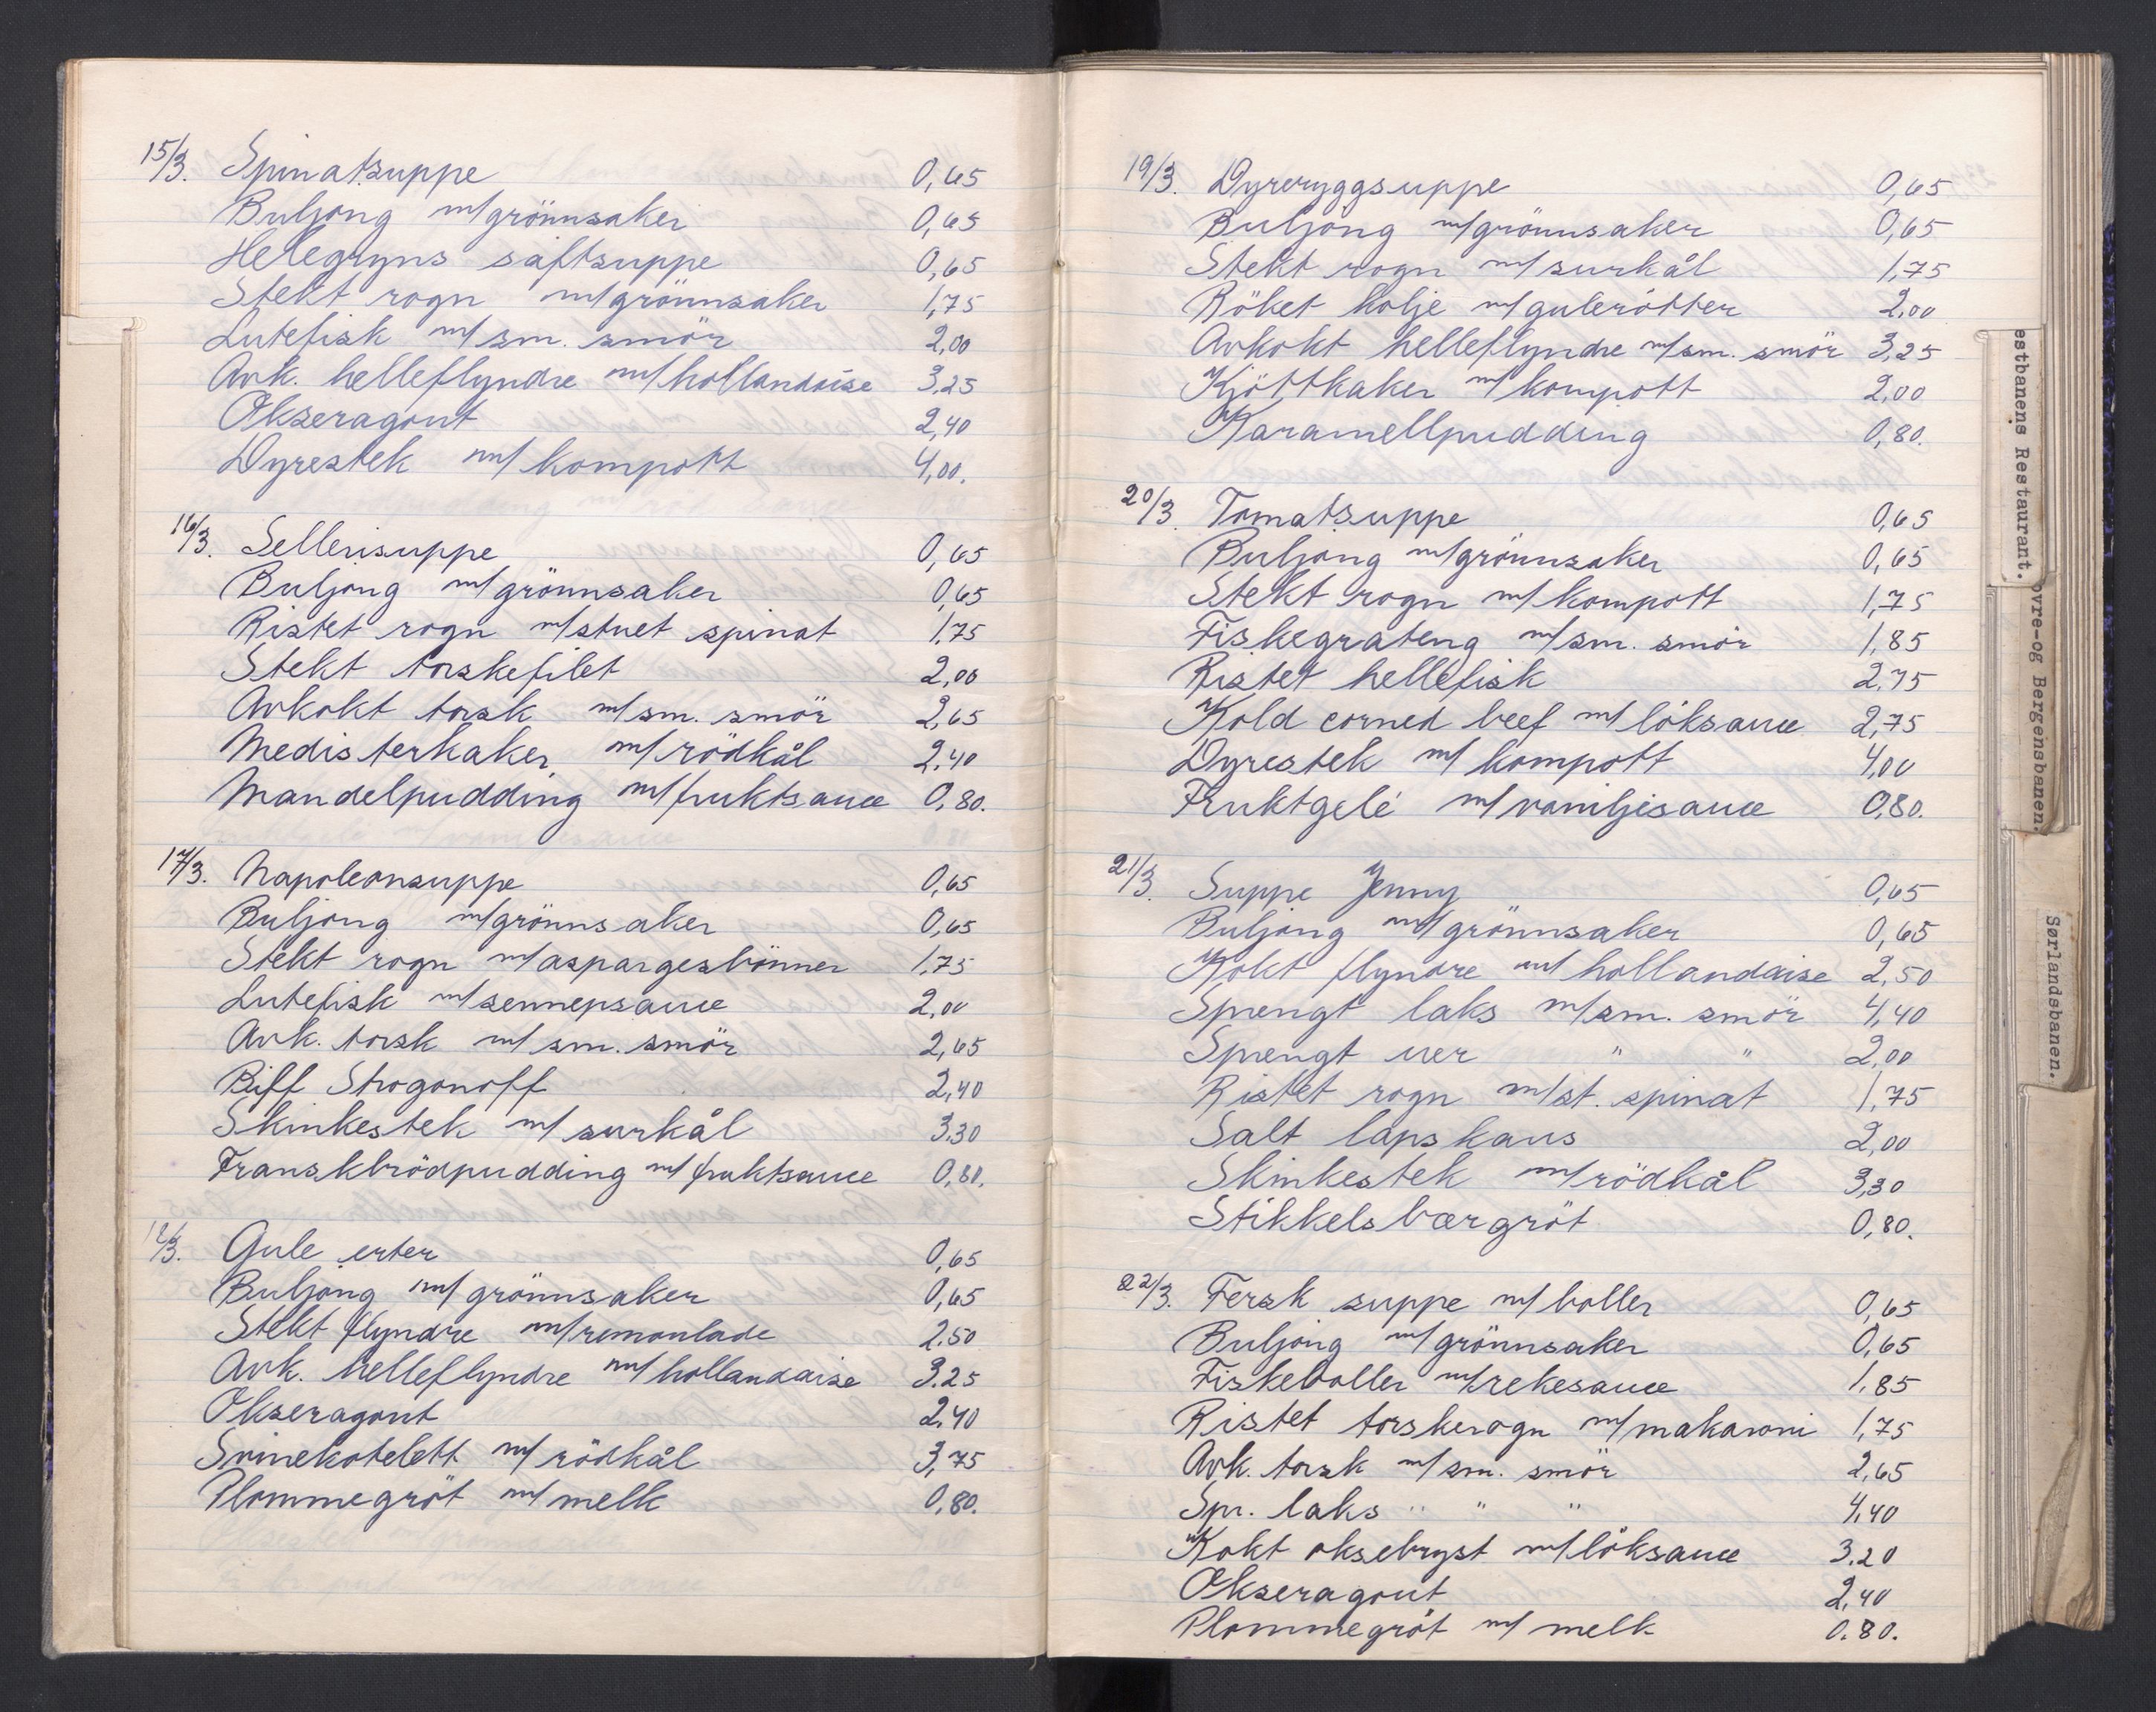 15/3. Spinatsuppe 0,65
Buljong m/grönnsaker 0,65
Helegryns saftsuppe 0,65
Stekt rogn m/grönnsaker 1,75
Lutefisk m/sm. smör 2,00
Avk. helleflyndre m/hollandaise 3,25
Okseragout 2,40
Dyrestek m/kompott 4,00.
16/3. Sellerisuppe 0,65
Buljong m/grönnsaker 0,65
Ristet rogn m/stuet spinat 1,75
Stekt torskefilet 2,00
Avkokt torsk m/sm. smör 2,65
Medisterkaker m/rödkål 2,40
Mandelpudding m/fruktsauce 0,80.
17/3. Napoleonsuppe 0,65
Buljong m/grönnsaker 0,65
Stekt rogn m/aspargesbönner 1,75
Lutefisk m/sennepsauce 2,00
Avk. torsk m/sm. smör 2,65
Biff Strogonoff 2,40
Skinkestek m/surkål 3.30
Franskbrödpudding m/fruktsauce 0,80.
18/3. Gule erter 0,65
Buljong m/grönnsaker 0,65
Stekt flyndre m/remoulade 2.50
Avk. helleflyndre m/hollandaise 3.25
Okseragout 2,40
Svinekotelett m/rödkål 3,75
Plommegröt m/melk 0,80.
19/3. Dyreryggsuppe 0,65
Buljong m/grönnsaker 0,65
Stekt rogn m/surkål 1,75
Röket kolje m/gulerötter 2,00
Avkokt helleflyndre m/sm. smör 3,25
Kjöttkaker m/kompott 2,00
Karamellpudding 0,80.
20/3. Tomatsuppe 0,65
Buljong m/grönnsaker 0,65
Stekt rogn m/kompott 1,75
Fiskegrateng m/sm. smör 1,85
Ristet hellefisk 2,75
Kold corned beef m/löksauce 2,75
Dyrestek m/kompott 4,00
Fruktgelé m/vaniljesauce 0,80.
21/3. Suppe Jenny 0,65
Buljong m/grönnsaker 0,65
Kokt flyndre m/hollandaise 2,50
Sprengt laks m/sm. smör 4,40
Sprengt uer " " 2,00
Ristet rogn m/st. spinat 1,75
Salt lapskaus 2,00
Skinkestek m/rödkål 3,30
Stikkelsbærgröt 0,80.
22/3. Fersk suppe m/boller 0,65
Buljong m/grönnsaker 0,65
Fiskeboller m/rekesauce 1,85
Ristet torskerogn m/makaroni 1,75
Avk. torsk m/sm. smör 2,65
Spr. laks " " " 4,40
Kokt oksebryst m/löksauce 3.20
Okseragout 2,40
Plommegröt m/melk 0.80.
estbanens Restaurant.
ovre-og Bergensbanen.
Sørlandsbanen.